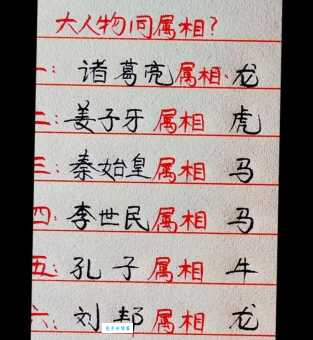 大人物问属相?
一: 诸葛亮属相: 龙
二: 姜子牙属相 虎
三: 秦始皇属相 马
四: 李世民属相 马
五: 孔子属相 牛
六: 刘邦属相 龙